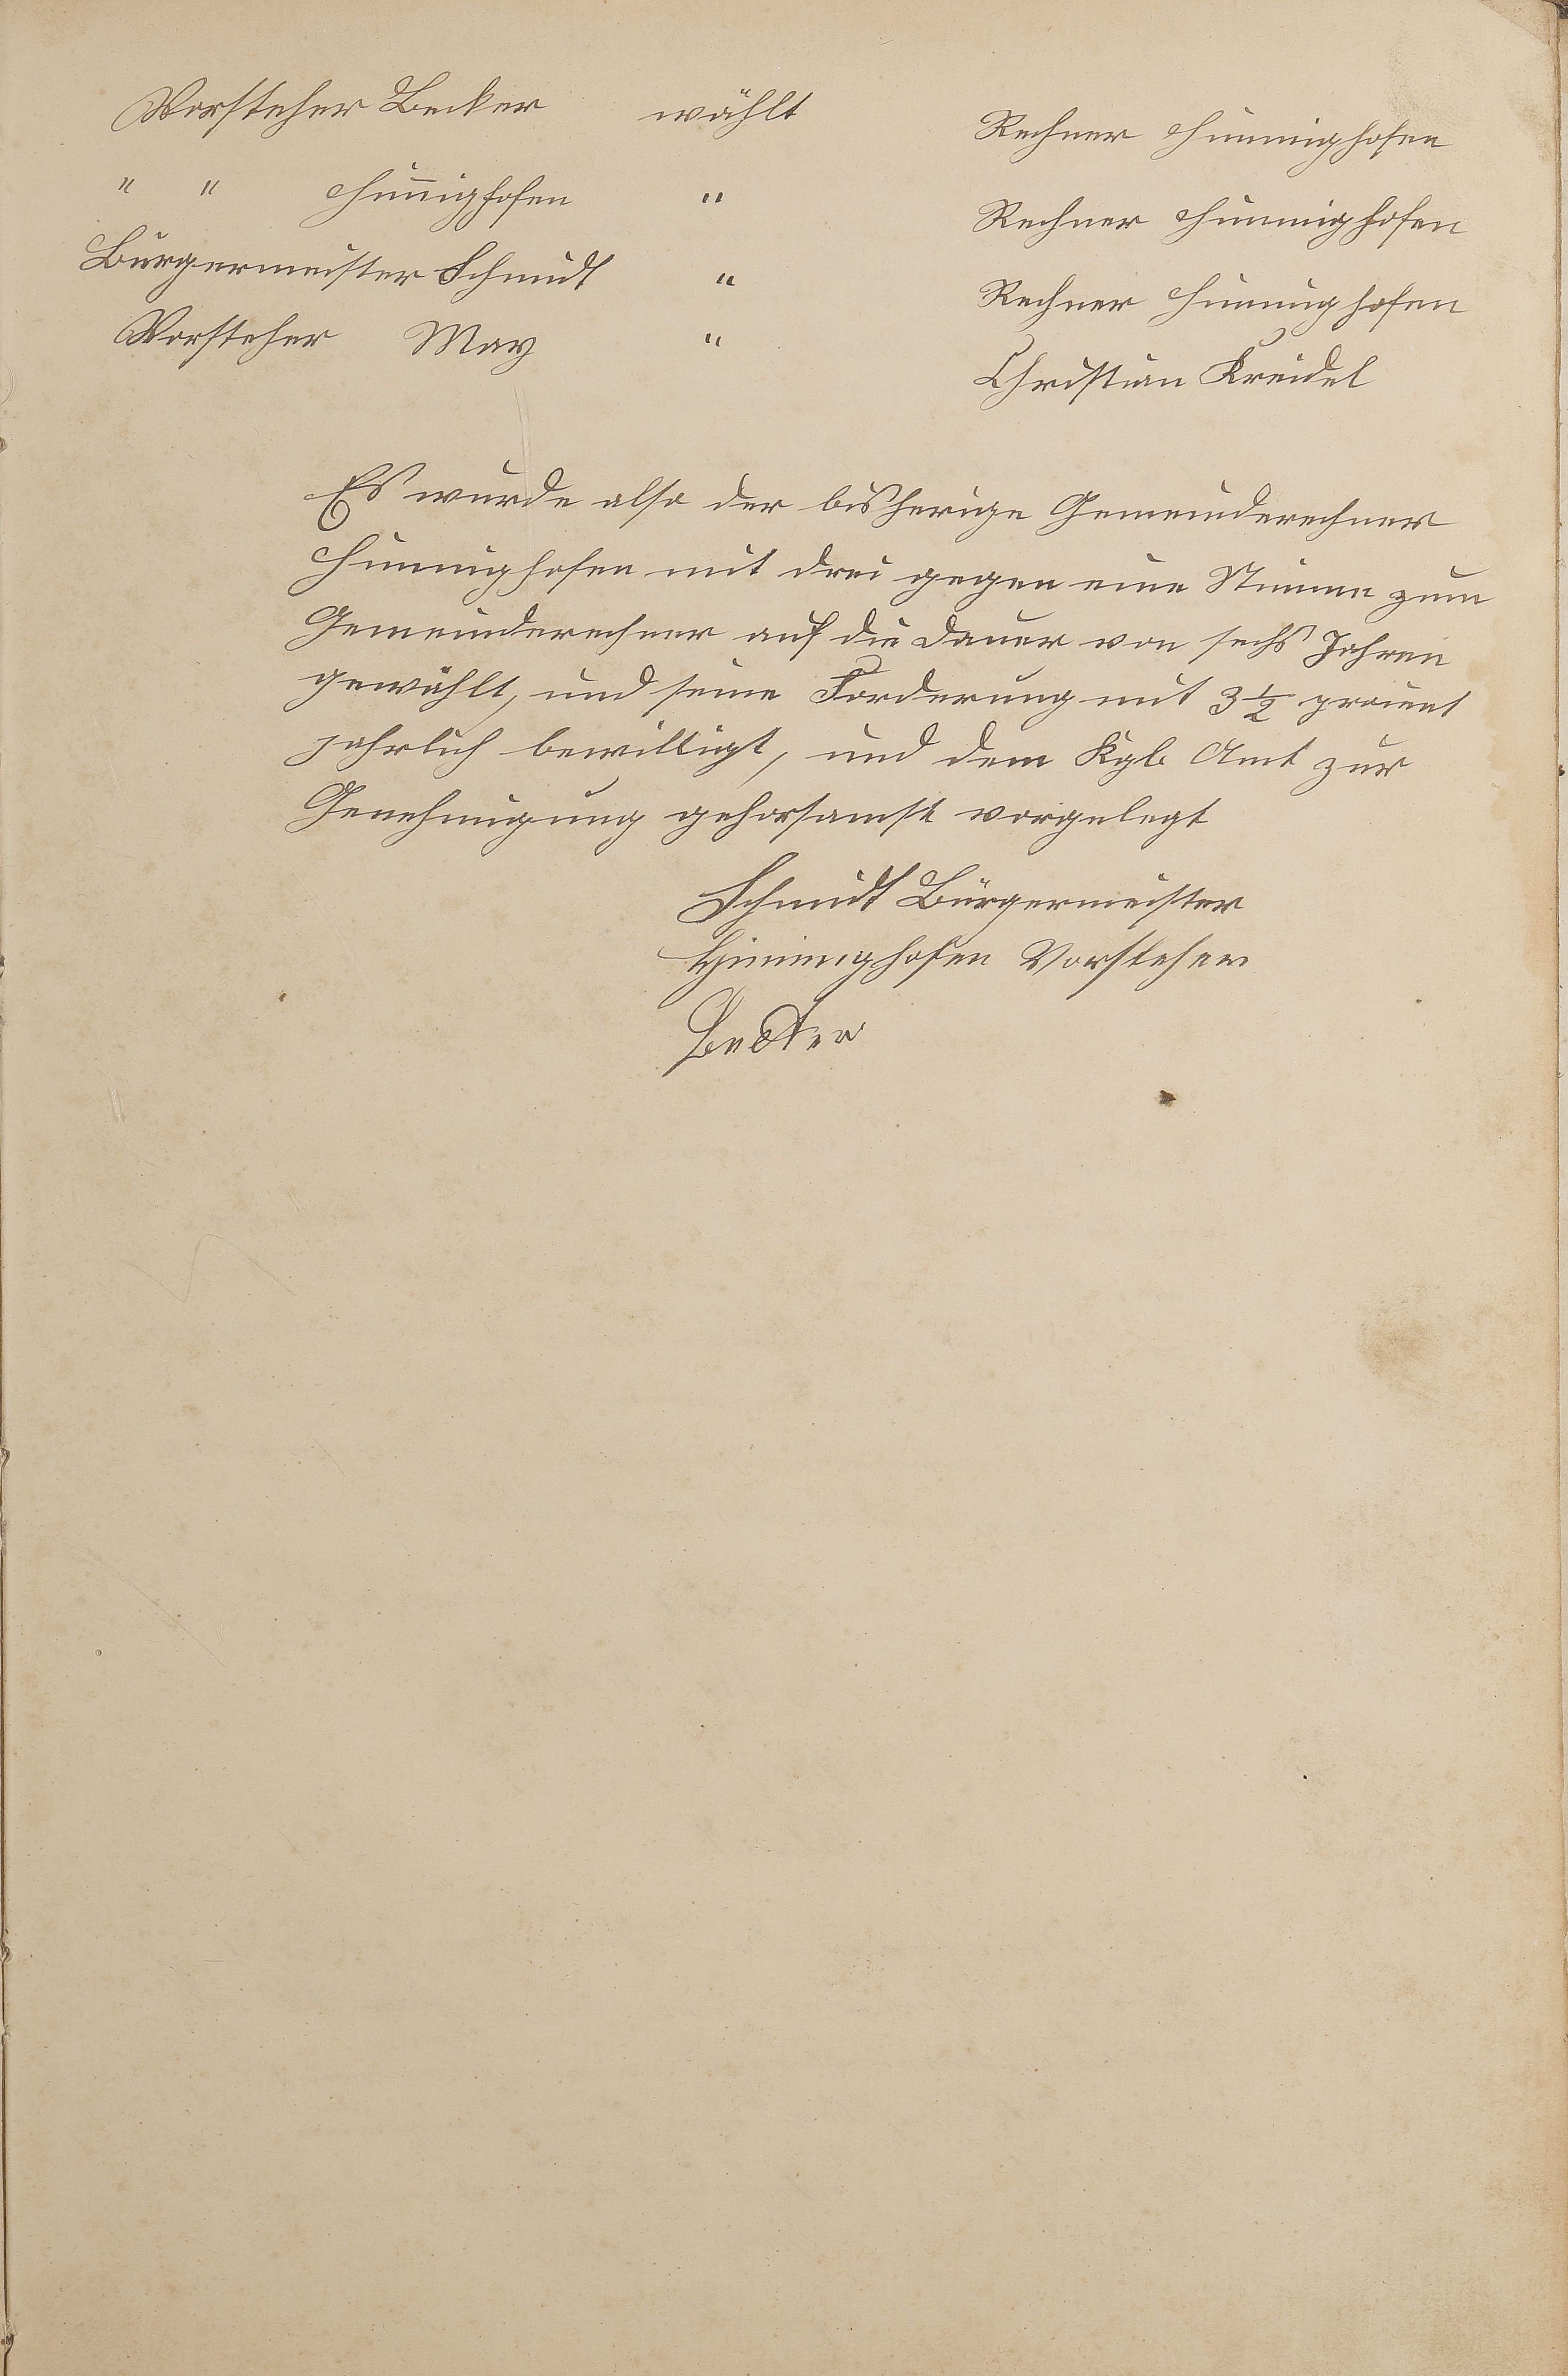 Vorsteher Becker wählt Rechner Himmighofen
" " Himighofen " Rechner Himmighofen
Bürgermeister Schmidt " Rechner Himmighofen
Vorsteher May " Christian Kreidel
Es wurde also der bisherige Gemeinderechner
Himmighofen mit drei gegen eine Stimme zum
Gemeinderechner auf die Dauer von sechs Jahren
gewählt, und seine Forderung mit 3½ procent
jahrlich bewilligt, und dem Kgl. Amt zur
Genehmigung gehorsamst vorgelegt
Schmidt Bürgermeister
Himmighofen Vorsteher
Becker